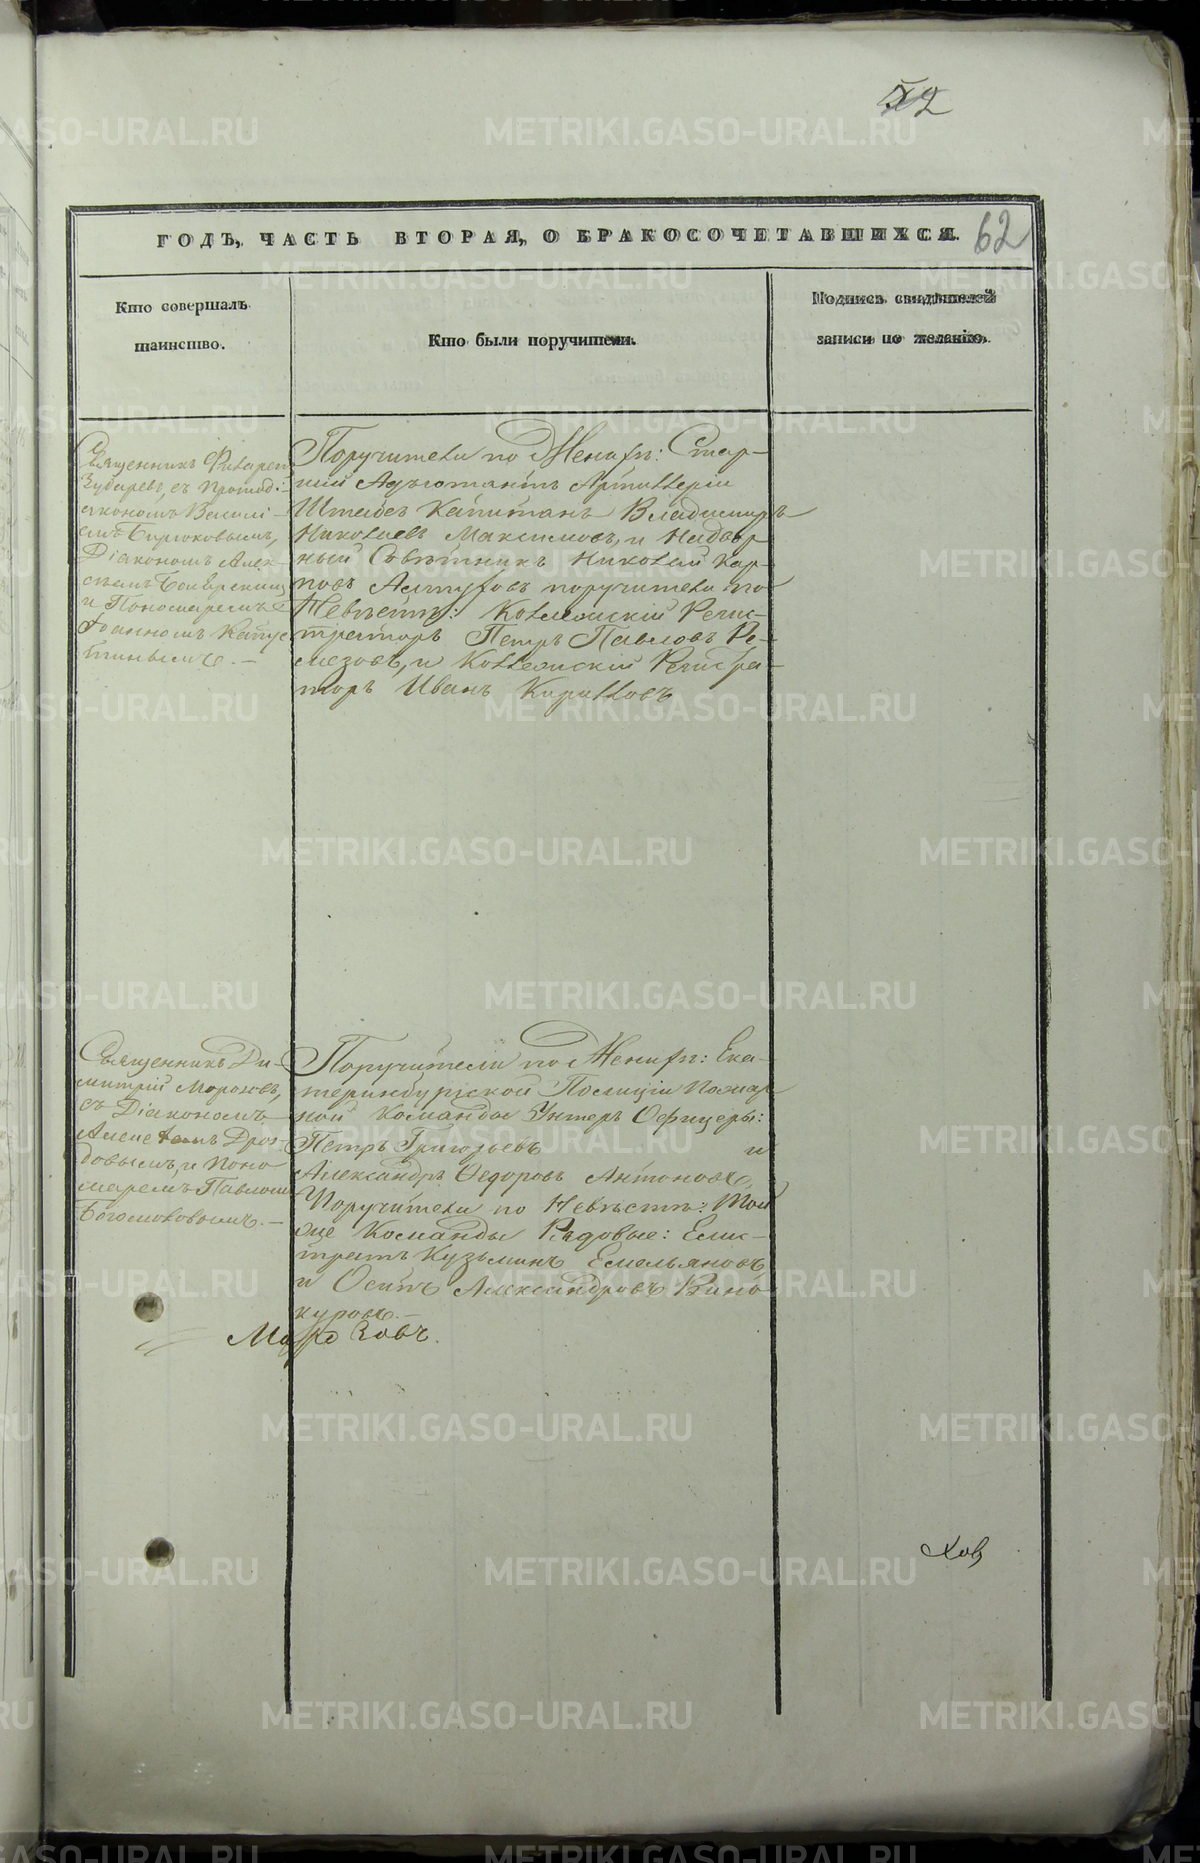 52
ГОДЪ, ЧАСТЬ ВТОРАЯ, О БРАКОСОЧЕТАВШИХСЯ. 62
Кто совершалъ
таинство.
Кто были поручители.
Подпись свидѣтелей
записи по желанію.
Священникъ
Зубаревъ, съ Протод:
іакономъ Василі-
емъ Бирюковымъ,
Діакономъ Алек-
сѣемъ
и Пономаремъ
Іоанномъ Капус
тинымъ. —
Поручители по Женихѣ: Стар-
шій Адъютантъ Артиллеріи
Штабсъ Капитанъ Владимиръ
Николаевъ Максимовъ, и Надвор
ный Совѣтникъ Николай Кар-
повъ поручители по
Невѣстѣ: Коллежскій Регис-
траторъ Петръ Павловъ Ре-
мезовъ, и Коллежскій Регистра-
торъ Иванъ Кирилловъ
Священникъ Ди-
митрій Морозовъ,
съ Діакономъ
Дроз-
довымъ, и Поно-
маремъ Павломъ
Богомоловымъ. —
Поручители по Женихѣ: Ека-
теринбургской Полиціи Пожар
ной Команды Унтеръ Офицеры:
Петръ Григорьевъ и
Александръ Ѳедоровъ Антоновъ,
Поручители по Невѣстѣ: Той
же Команды Рядовые: Елис-
тратъ Кузьминъ Емельяновъ
и Осипъ Александровъ Вино
куровъ. —
Морозовъ.
ховъ
METRIKI.GASO-URAL.RU